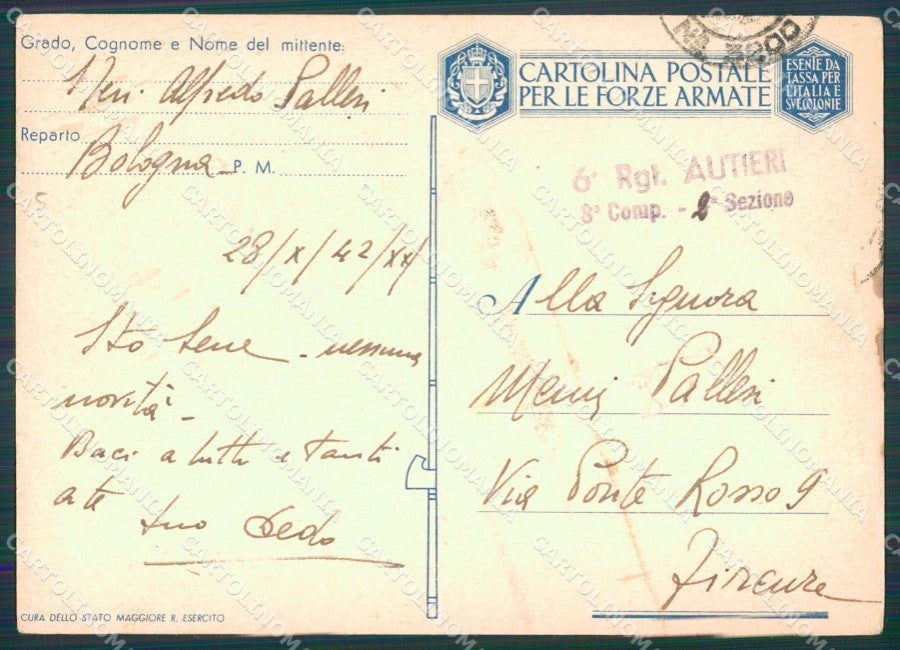 Grado, Cognome e Nome del mittente:
Neri Alfredo Palleri
Reparto
Bologna P. M.
28/X/42/XX
Sto bene - nessuna
novità -
Baci a tutti e tanti
a te
tuo Dedo
CURA DELLO STATO MAGGIORE R. ESERCITO
CARTOLINA POSTALE
PER LE FORZE ARMATE
ESENTE DA
TASSA PER
L'ITALIA E
SVE COLONIE
6° Rgt. AUTIERI
8ª Comp. - 2ª Sezione
Alla Signora
Palleri
Via Ponte Rosso 9
Firenze
CARTOLINOMANIA